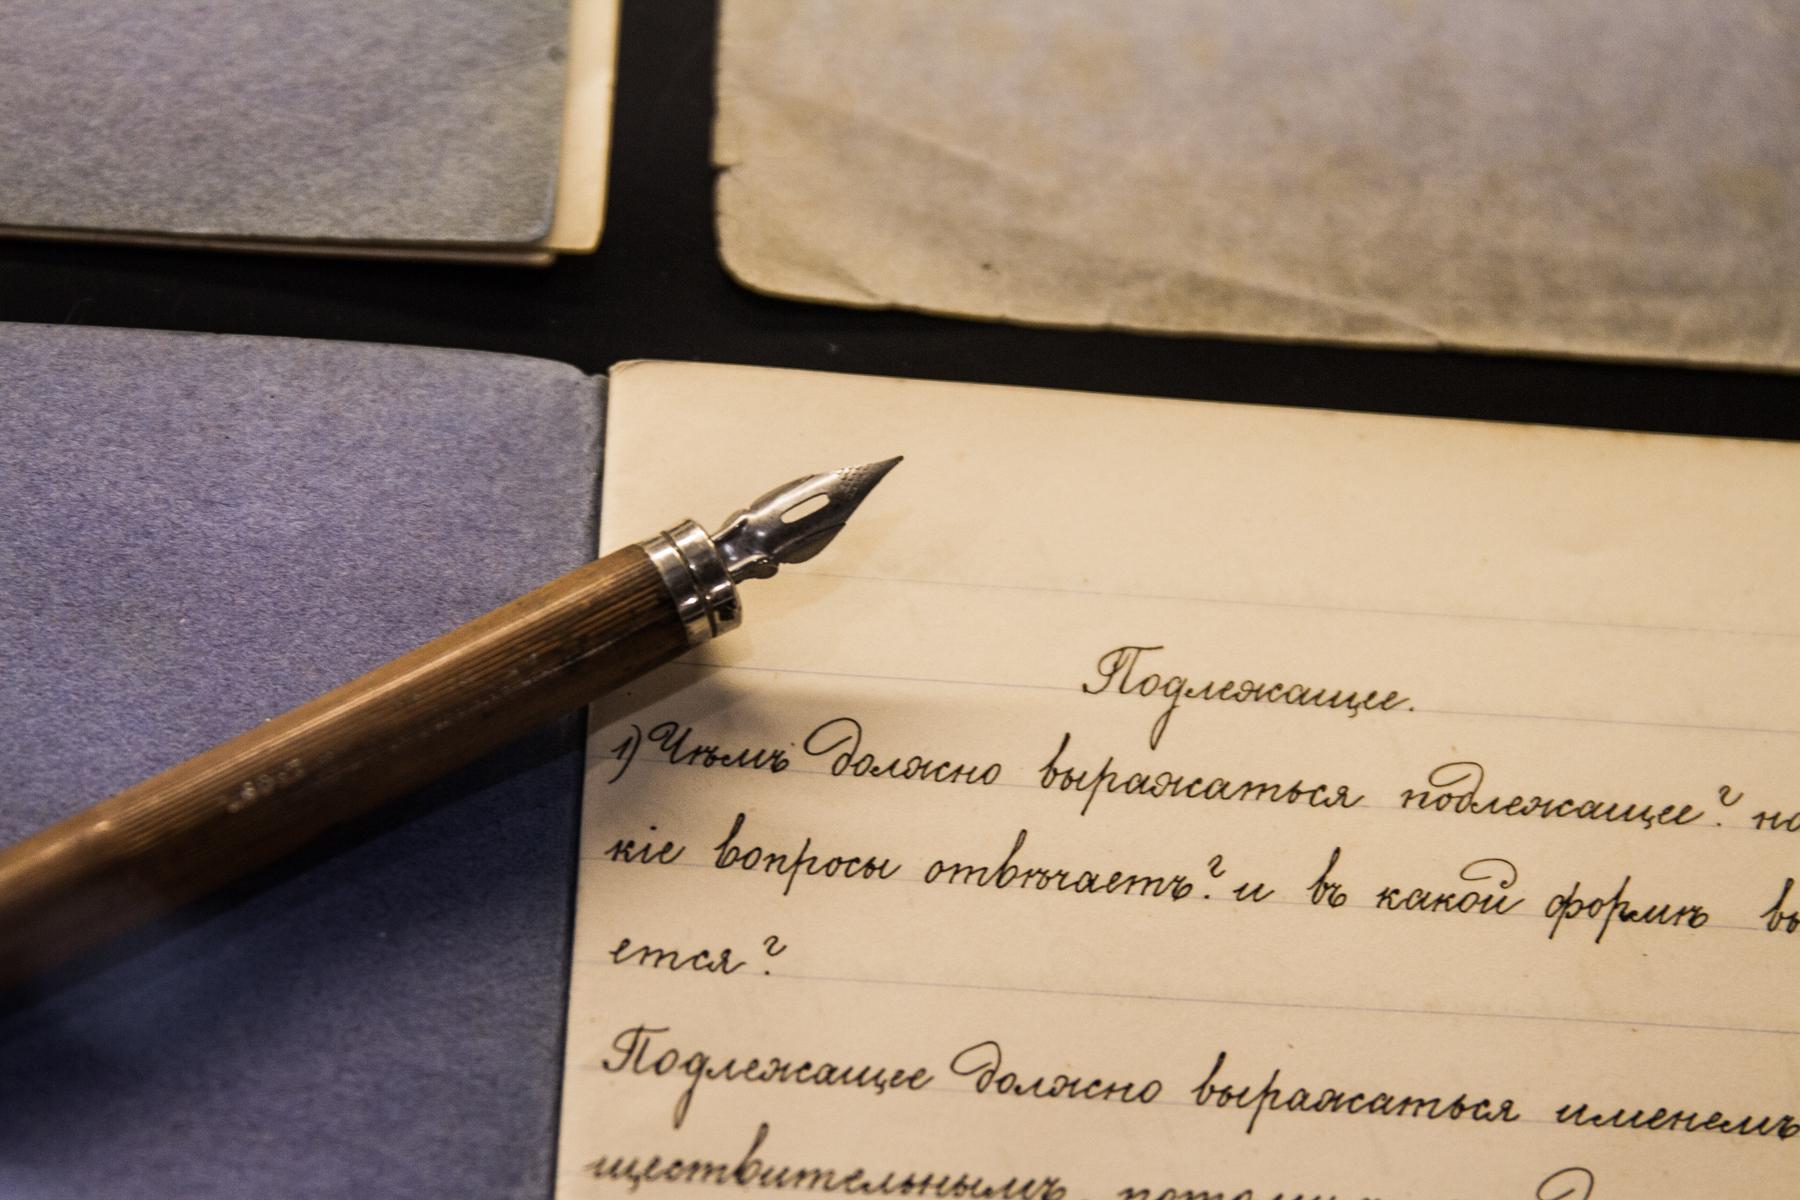 Подлежащее.
1) Чѣмъ должно выражаться подлежащее? на
кіе вопросы отвѣчаетъ? и въ какой формѣ вы
ется?
Подлежащее должно выражаться именемъ
ществительнымъ,